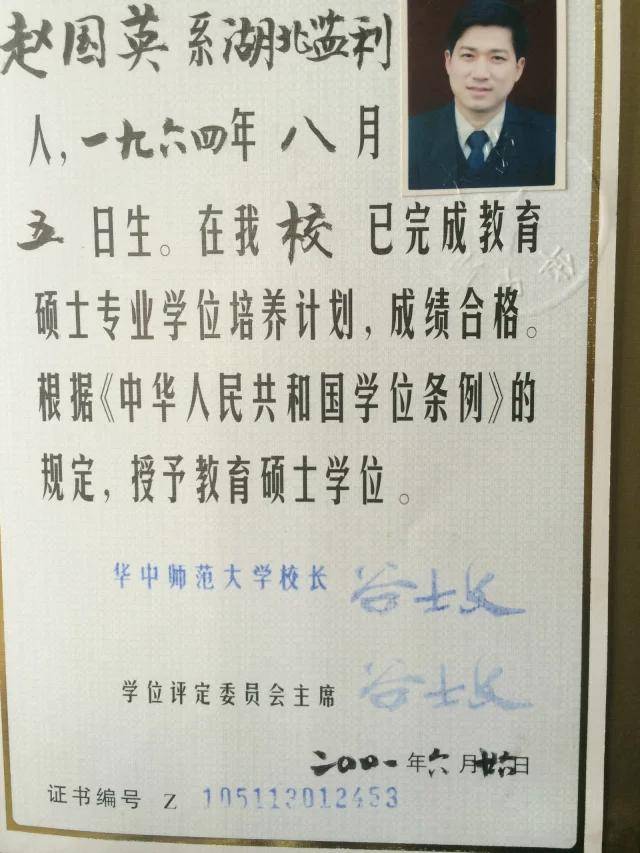 赵国英 系湖北监利
人，一九六四年 八 月
五 日生。在我 校 已完成教育
硕士专业学位培养计划，成绩合格。
根据《中华人民共和国学位条例》的
规定，授予教育硕士学位。
华中师范大学校长
学位评定委员会主席
二〇〇一年六月廿六日
证书编号 Z 105113012453